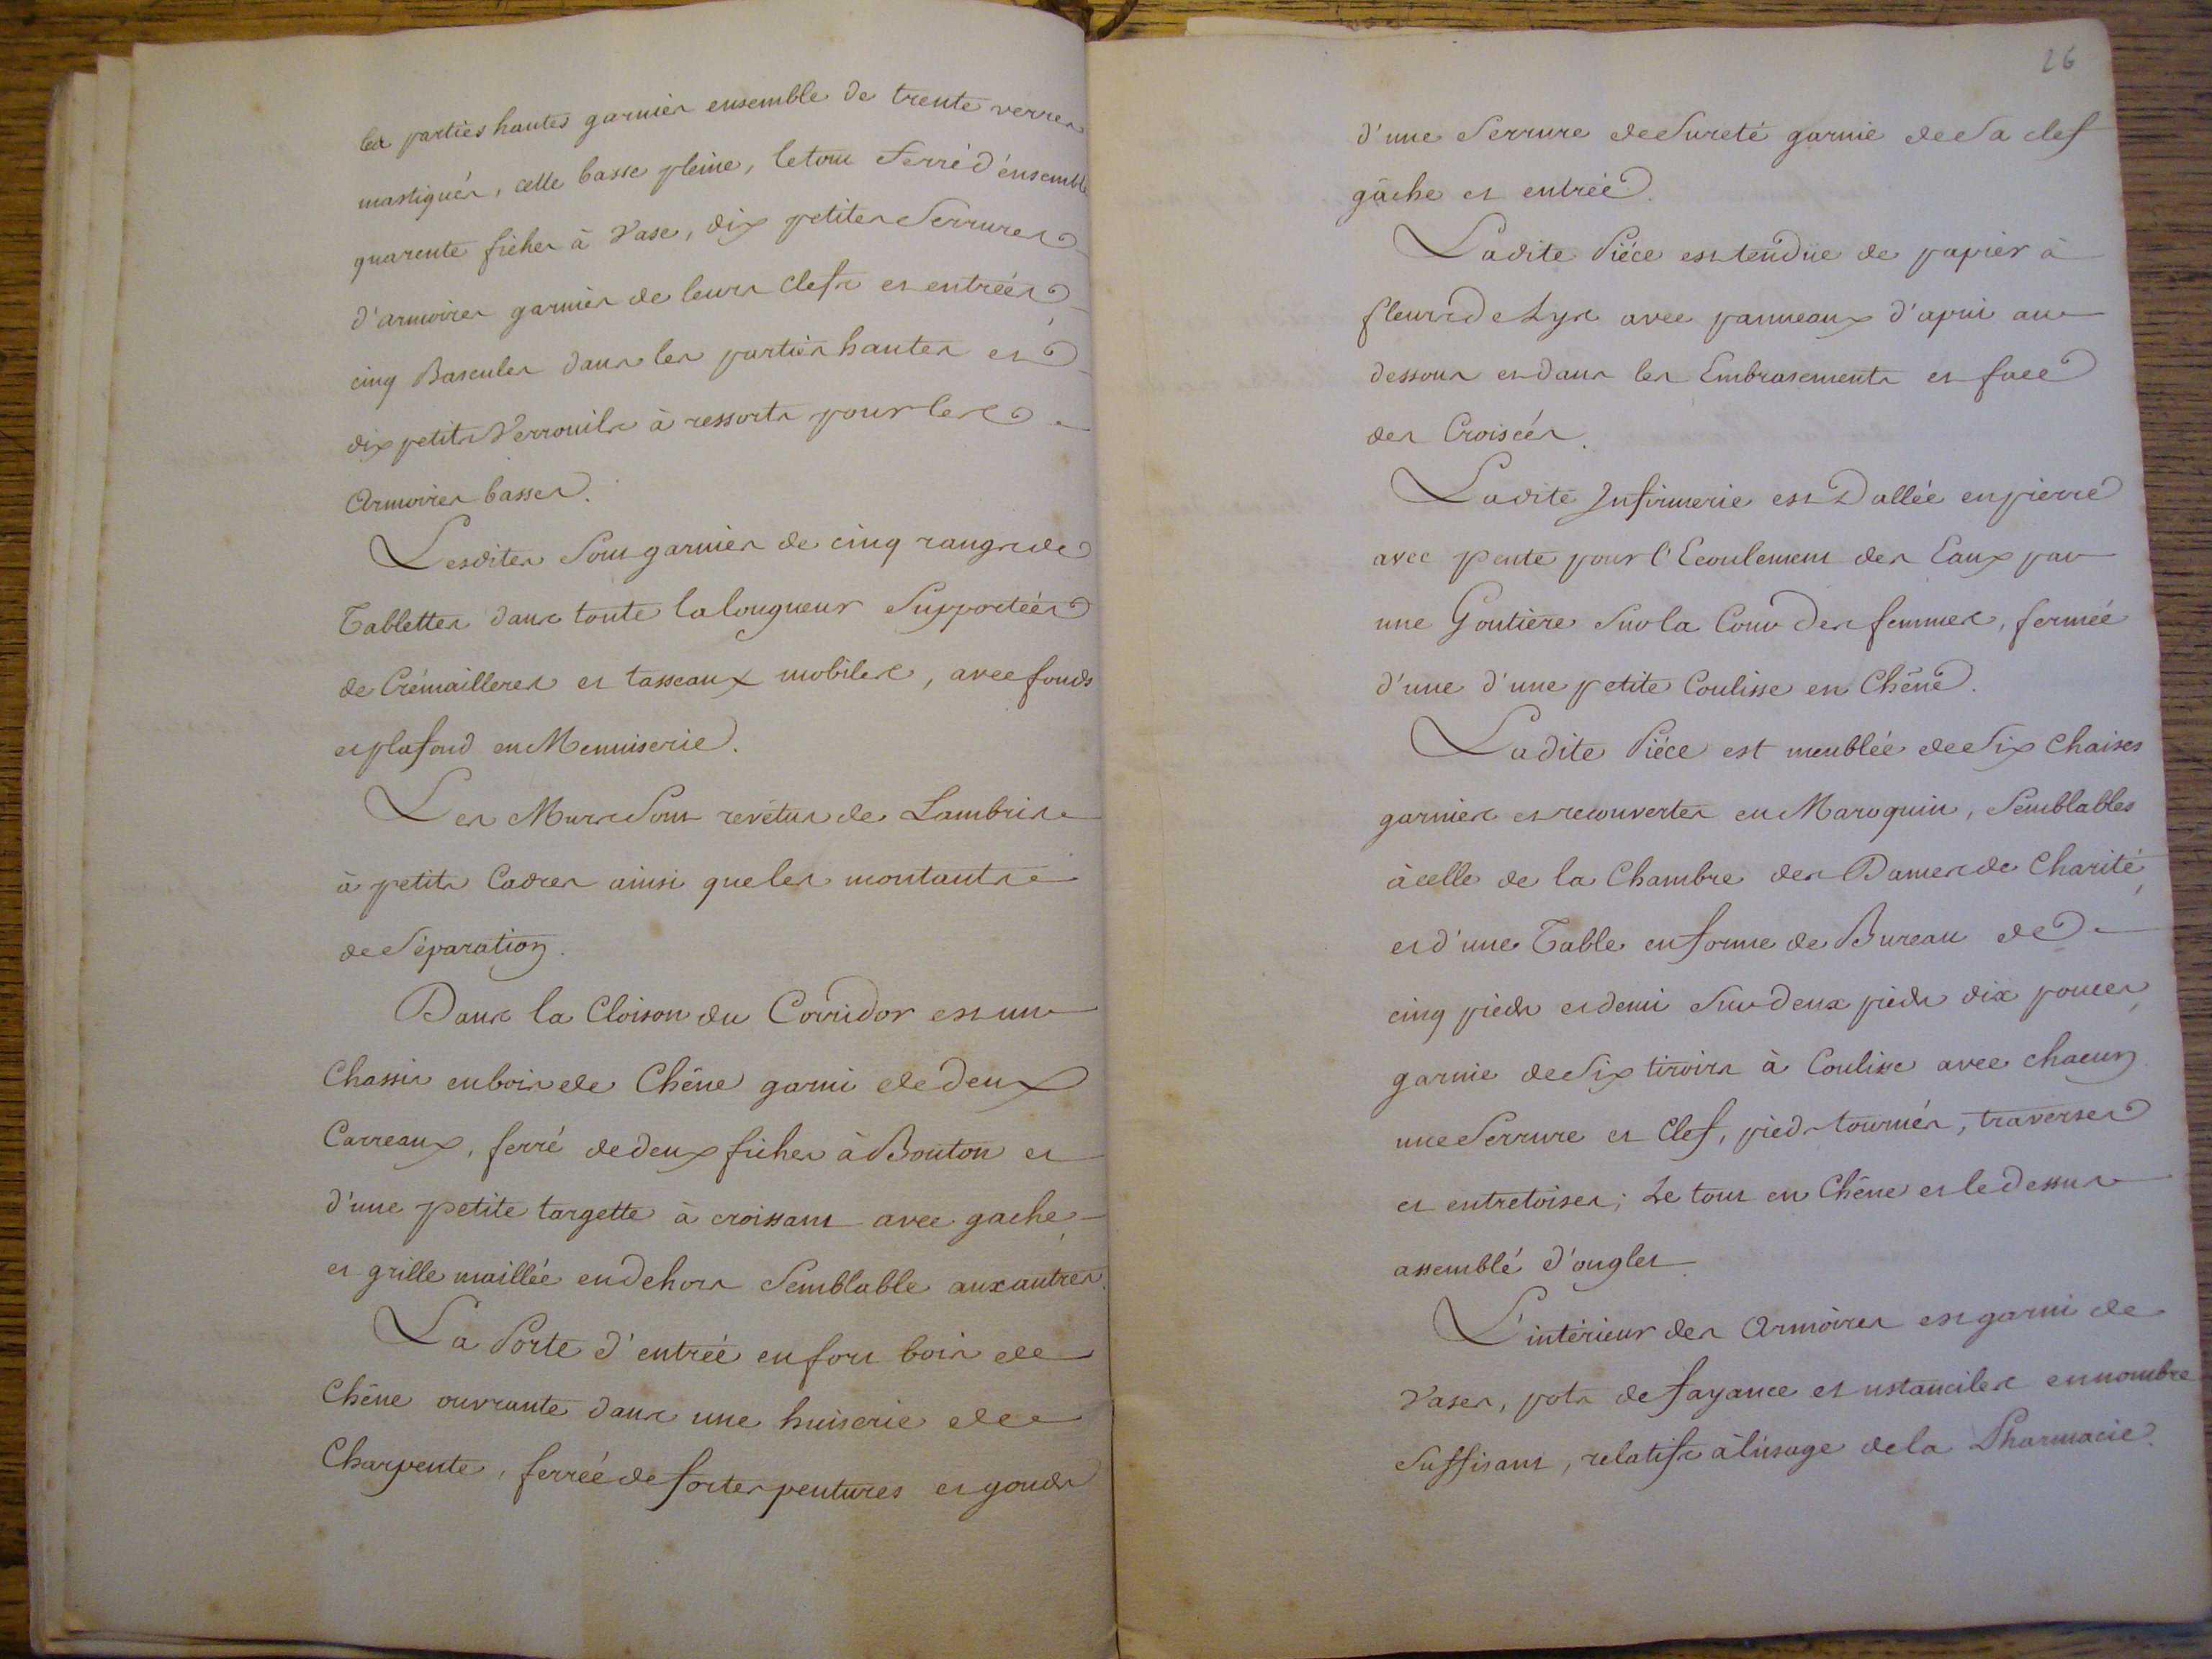 les parties hautes garnies ensemble de trente verres
mastiqués, celle basse pleine, le tout ferré d'ensemble
quarente fiches à Vase, dix petites Serrures
d'armoires garnies de leurs clefs et entrées,
cinq Bascules dans les parties hautes et
dix petits Verrouils à ressorts pour les
Armoires basses.
Lesdites sont garnies de cinq rangs de
Tablettes dans toute la longueur Supportées
de Crémailleres et tasseaux mobiles, avec fonds
et plafond en Menuiserie.
Les Murs sont revêtus de Lambris
à petits Cadres ainsi que les montants
de Séparation.
Dans la Cloison du Corridor est un
Chassis en bois de Chêne garni de deux
Carreaux, ferré de deux fiches à Bouton et
d'une petite targette à croissant avec gache,
et grille maillée en dehors Semblable aux autres.
La Porte d'entrée en fort bois de
Chêne ouvrante dans une huiserie de
Charpente, ferrée de fortes pentures et gonds
26
d'une Serrure de Sureté garnie de Sa clef
gâche et entrée.
Ladite Piéce est tendüe de papier à
fleurs de Lys avec panneaux d'apui au
dessous et dans les Embrasements et face
des Croisées.
Ladite Infirmerie est Dallée en pierre
avec pente pour l'Ecoulement des Eaux par
une Goutière Sur la Cour des femmes, fermée
d'une d'une petite Coulisse en Chêne.
Ladite Piéce est meublée de Six Chaises
garnies et recouvertes en Maroquin, Semblables
à celle de la Chambre des Dames de Charité,
et d'une Table en forme de Bureau de
cinq pieds et demi Sur deux pieds dix pouces,
garnie de Six tiroirs à Coulisse avec chacun
une Serrure et Clef, pieds tournés, traverses
et entretoises; Le tout en Chêne et le dessus
assemblé d'onglet.
L'intérieur des Armoires est garni de
Vases, pots de fayance et ustanciles en nombre
Suffisant, relatifs à l'usage de la Pharmacie.